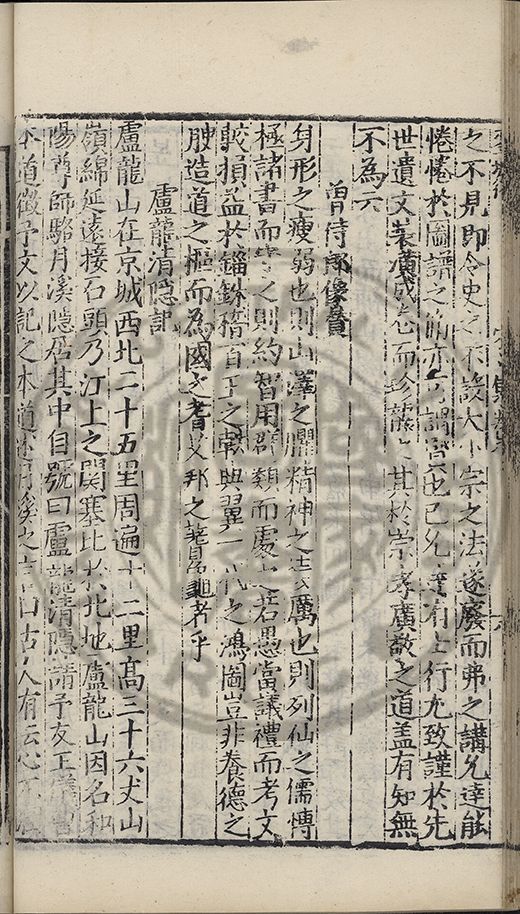 之不見即令史之不設大小宗之法遂廢而弗之講允達能
惓惓於圖譜之
世遺文裝潢成
而珍藏
其於崇孝廣敬之道蓋有知無
不為
曾侍郎像贊
身形之瘦弱也則山澤之臞精神之
厲也則列仙之儒博
極諸書而
之則約智用群類而處之若愚當議禮而考文
較損益於錙銖稽百王之
典翼一代之鴻圖豈非養德之
腴造道之樞而為國之耆艾邦之蓍龜者乎
盧龍清隱記
盧龍山在京城西北二十五里周遍十二里高三十六丈山
嶺綿延遠接石頭乃江上之關塞比於北地盧龍山因名和
陽尊師駱月溪隱居其中自號曰盧龍清隱請予友王
本道徵予文以記之本道
月溪之言曰古人有云心